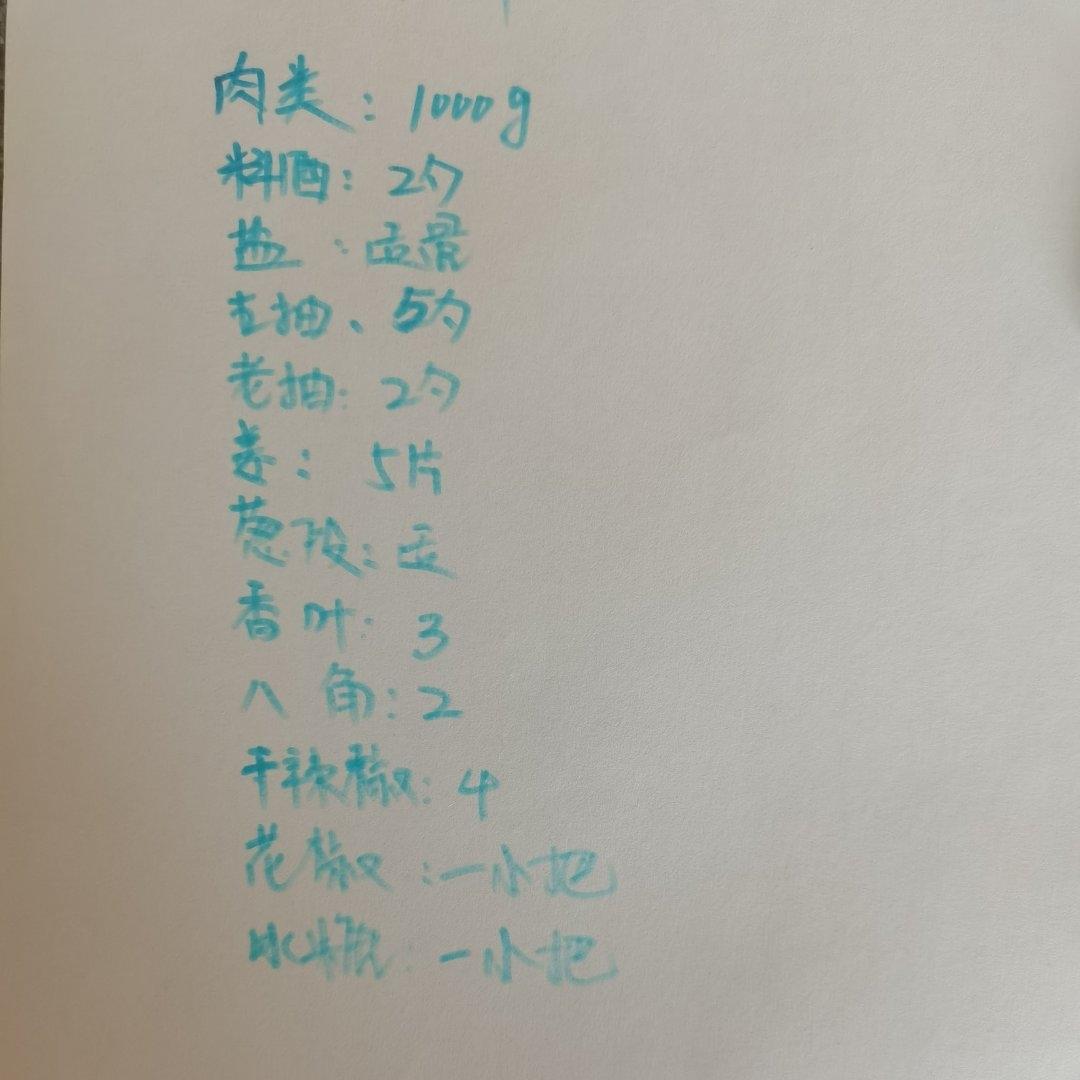 肉类：1000g
料酒：2勺
盐：适量
生抽、5勺
老抽：2勺
姜：5片
葱段：适
香叶：3
八角：2
干辣椒：4
花椒：一小把
冰糖：一小把